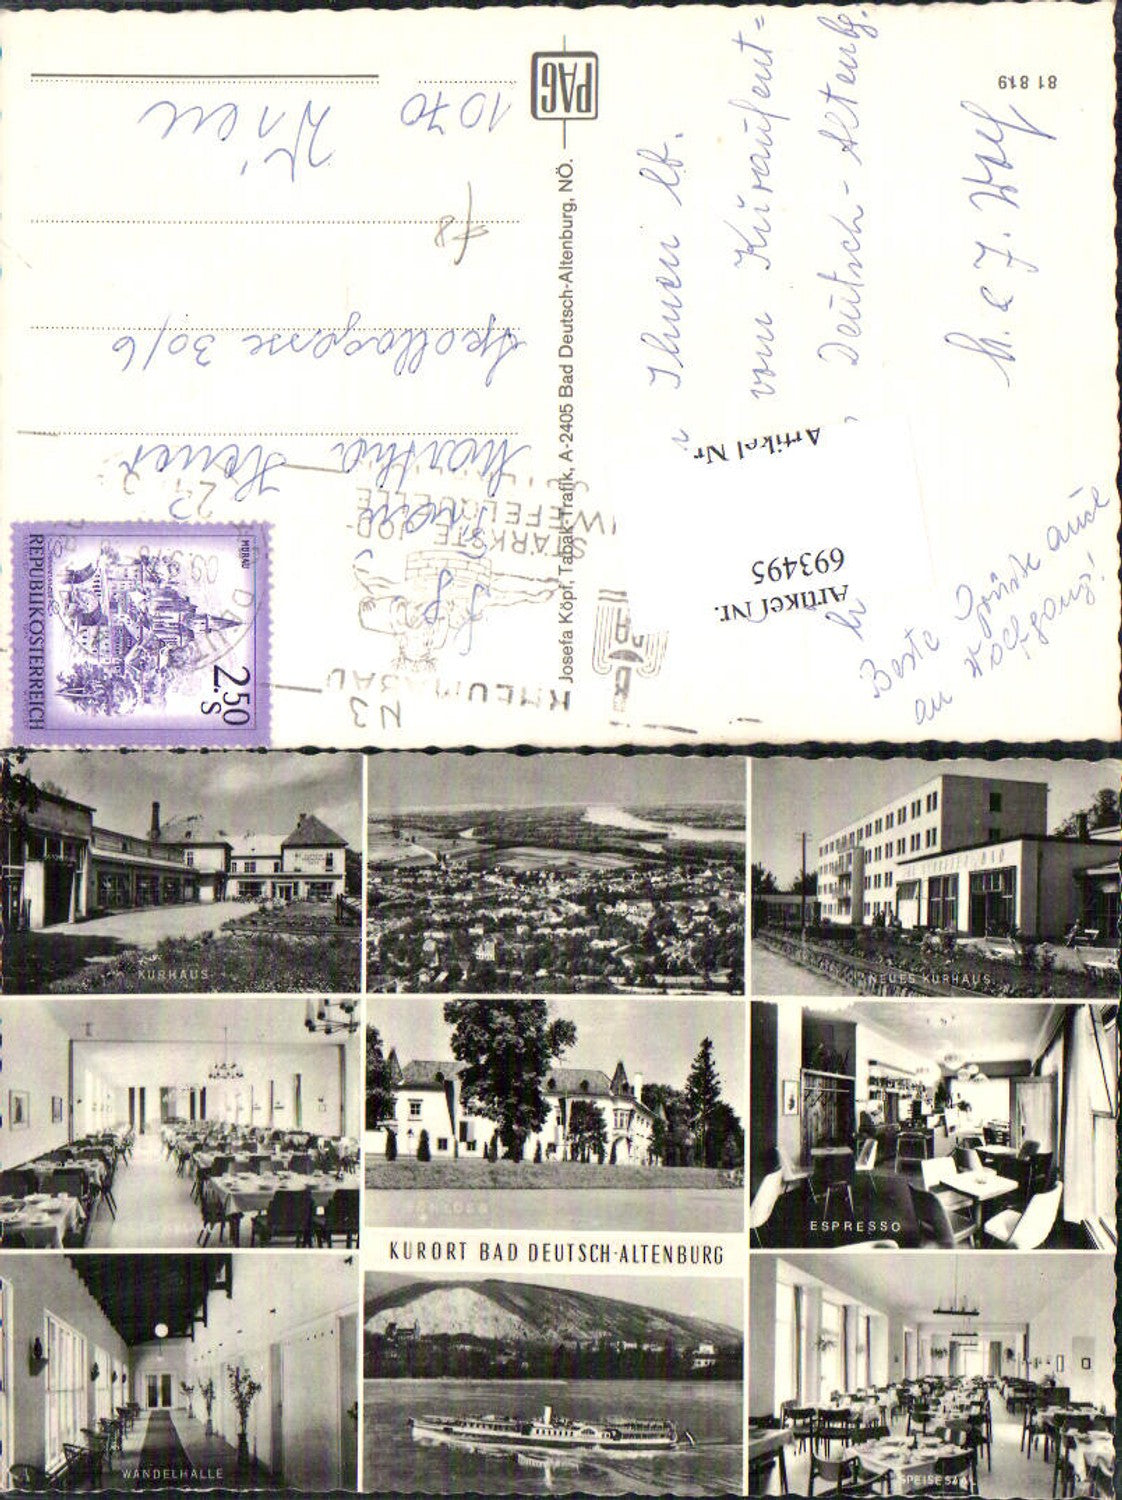 81 819
PAG
Josefa Köpf, Tabak-Trafik, A-2405 Bad Deutsch-Altenburg, NÖ.
Ihnen lb.
vom Kuraufent=
Deutsch-Altenbg.
Beste Grüße auch
an Wolfgang!
Artikel Nr.
693495
Artikel Nr.
STÄRKSTE JOD-
RHEUMABAD
MURAU
2.50
S
REPUBLIK ÖSTERREICH
Martha
Apollogasse 30/6
1070 Wien
KURHAUS
NEUES KURHAUS
ESPRESSO
KURORT BAD DEUTSCH-ALTENBURG
WANDELHALLE
SPEISESAAL